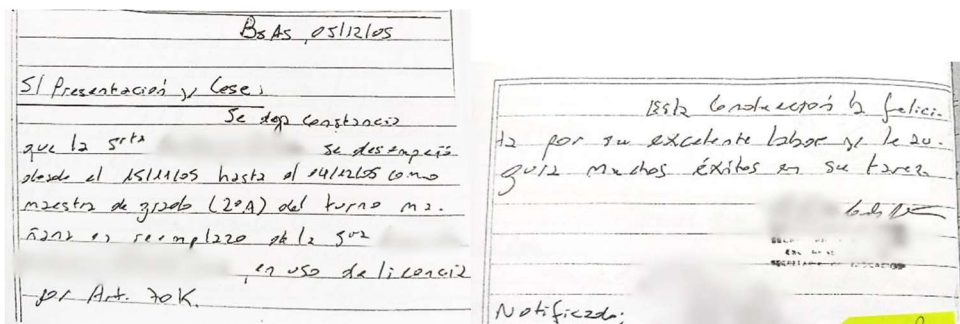 BsAs, 05/12/05
S/ Presentación y Cese:
Se deja constancia
que la Srta
se desempeñó
desde el 15/11/05 hasta el 04/12/05 como
maestra de grado (2ºA) del turno ma-
ñana en reemplazo de la Sra
, en uso de licencia
por Art. 70K.
Esta Conducción la felici-
ta por su excelente labor y le au-
gura muchos éxitos en su tarea
Notificada: